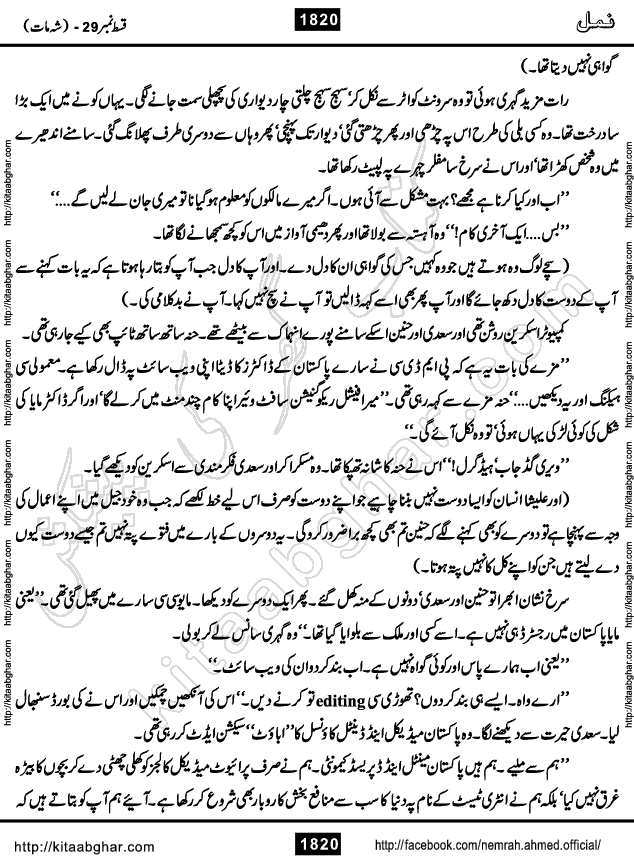 قسط نمبر 29 - (شہ مات)
1820
نمل
گواہی نہیں دیتا تھا۔)
رات مزید گہری ہوئی تو وہ سرونٹ کوارٹر سے نکل کر، سہج سہج چلتی چار دیواری کی پچھلی سمت جانے لگی۔ یہاں کونے میں ایک بڑا
سا درخت تھا۔ وہ کسی بلی کی طرح اس پہ چڑھی اور پھر چڑھتی گئی، دیوار تک پہنچی، پھر وہاں سے دوسری طرف پھلانگ گئی۔ سامنے اندھیرے
میں وہ شخص کھڑا تھا، اور اس نے سرخ سا مفلر چہرے پہ لپیٹ رکھا تھا۔
’’اب اور کیا کرنا ہے مجھے؟ بہت مشکل سے آئی ہوں۔ اگر میرے مالکوں کو معلوم ہو گیا نا تو میری جان لے لیں گے....‘‘
’’بس.... ایک آخری کام!‘‘ وہ آہستہ سے بولا تھا اور پھر دھیمی آواز میں اس کو کچھ سمجھانے لگا تھا۔
(سچے لوگ وہ ہوتے ہیں جو وہ کہیں جس کی گواہی ان کا دل دے۔ اور آپ کا دل جب آپ کو بتا رہا ہوتا ہے کہ یہ بات کہنے سے
آپ کے دوست کا دل دکھ جائے گا اور آپ پھر بھی اسے کہہ ڈالیں تو آپ نے سچ نہیں کہا۔ آپ نے بدکلامی کی۔)
کمپیوٹر اسکرین روشن تھی اور سعدی اور حنین اسکے سامنے پورے انہماک سے بیٹھے تھے۔ حنہ ساتھ ساتھ ٹائپ بھی کیے جا رہی تھی۔
’’مزے کی بات یہ ہے کہ پی ایم ڈی سی نے سارے پاکستان کے ڈاکٹرز کا ڈیٹا اپنی ویب سائٹ پہ ڈال رکھا ہے۔ معمولی سی
ہیکنگ اور یہ دیکھیں....‘‘ حنہ مزے سے کہہ رہی تھی۔ ’’میرا فیشل ریکوگنیشن سافٹ وئیر اپنا کام چند منٹ میں کر لے گا، اور اگر ڈاکٹر مایا کی
شکل کی کوئی لڑکی یہاں ہوئی، تو وہ نکل آئے گی۔‘‘
’’ویری گڈ جاب، ہیڈ گرل!‘‘ اس نے حنہ کا شانہ تھپکا تھا۔ وہ مسکرا کر اور سعدی فکرمندی سے اسکرین کو دیکھے گیا۔
(اور علیشا انسان کو ایسا دوست نہیں بننا چاہیے جو اپنے دوست کو صرف اس لیے خط لکھے کہ جب وہ خود جیل میں اپنے اعمال کی
وجہ سے پہنچا ہے تو دوسرے کو بھی کہنے لگے کہ حنین تم بھی کچھ برا ضرور کرو گی۔ یہ دوسروں کے بارے میں فتوے پتہ نہیں تم جیسے دوست کیوں
دے لیتے ہیں جن کو اپنے کل کا نہیں پتہ ہوتا۔)
سرخ نشان ابھرا تو حنین اور سعدی، دونوں کے منہ کھل گئے۔ پھر ایک دوسرے کو دیکھا۔ مایوسی سی سارے میں پھیل گئی تھی۔ ’’یعنی
مایا پاکستان میں رجسٹرڈ ہی نہیں ہے۔ اسے کسی اور ملک سے بلوایا گیا تھا۔‘‘ وہ گہری سانس لے کر بولی۔
’’یعنی اب ہمارے پاس اور کوئی گواہ نہیں ہے۔ اب بند کر دو ان کی ویب سائٹ۔‘‘
’’ارے واہ۔ ایسے ہی بند کر دوں؟ تھوڑی سی editing تو کرنے دیں۔‘‘ اس کی آنکھیں چمکیں اور اس نے کی بورڈ سنبھال
لیا۔ سعدی حیرت سے دیکھنے لگا۔ وہ پاکستان میڈیکل اینڈ ڈینٹل کاؤنسل کا ’’اباؤٹ‘‘ سیکشن ایڈٹ کر رہی تھی۔
’’ہم سے ملیے۔ ہم ہیں پاکستان مینٹل اینڈ ڈپریسڈ کمیونٹی۔ ہم نے صرف پرائیوٹ میڈیکل کالجز کو کھلی چھٹی دے کر بچوں کا بیڑہ
غرق نہیں کیا، بلکہ ہم نے انٹری ٹیسٹ کے نام پہ دنیا کا سب سے منافع بخش کاروبار بھی شروع کر رکھا ہے۔ آیئے ہم آپ کو بتاتے ہیں کہ
http://kitaabghar.com
1820
http://facebook.com/nemrah.ahmed.official/
http://kitaabghar.com
http://kitaabghar.com
http://kitaabghar.com
http://kitaabghar.com
http://kitaabghar.com
http://kitaabghar.com
http://kitaabghar.com
http://kitaabghar.com
http://kitaabghar.com
http://kitaabghar.com
http://kitaabghar.com
http://kitaabghar.com
کتاب گھر کی پیشکش
kitaabghar.com